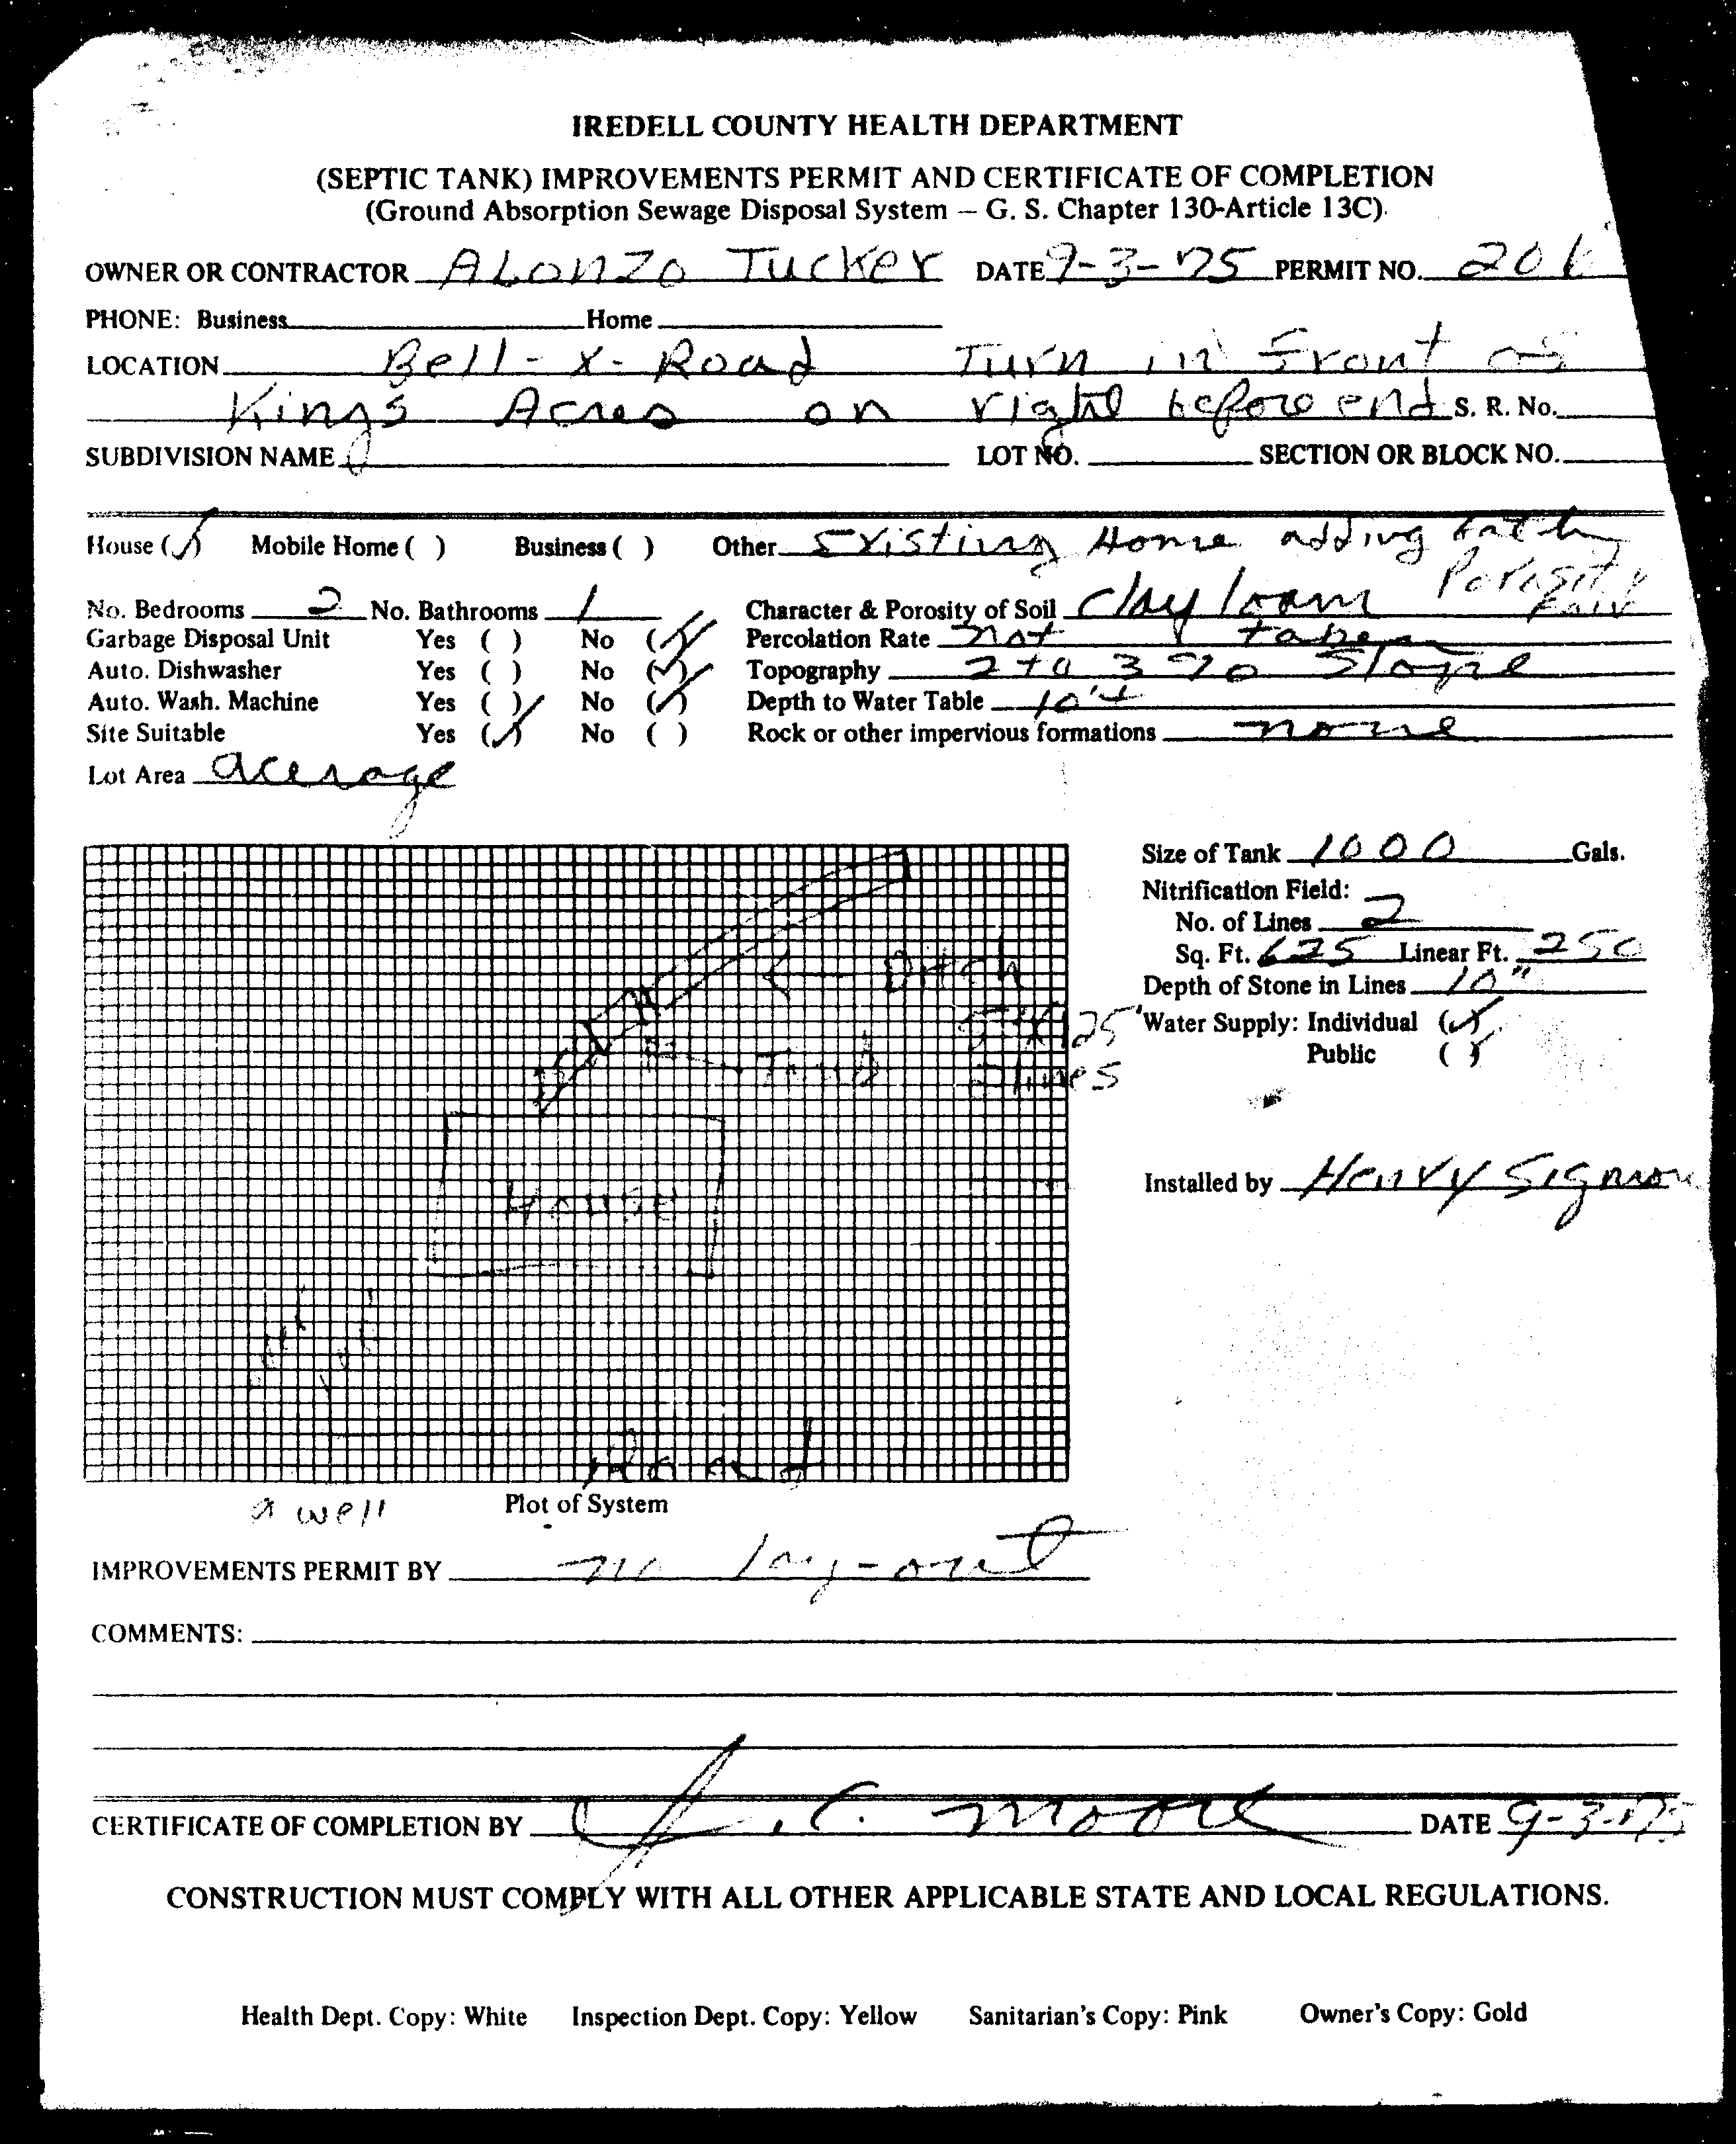 IREDELL COUNTY HEALTH DEPARTMENT
(SEPTIC TANK) IMPROVEMENTS PERMIT AND CERTIFICATE OF COMPLETION
(Ground Absorption Sewage Disposal System – G. S. Chapter 130-Article 13C).
OWNER OR CONTRACTOR ALONZO TUCKER DATE 9-3-75 PERMIT NO. 206
PHONE: Business Home
LOCATION Bell-X-Road Turn in Front of
Kings Acres on right before end S. R. No.
SUBDIVISION NAME LOT NO. SECTION OR BLOCK NO.
House (✓) Mobile Home ( ) Business ( ) Other Existing Home adding bath
No. Bedrooms 2 No. Bathrooms 1 Character & Porosity of Soil Clay loam Porosity Fair
Garbage Disposal Unit Yes ( ) No (✓) Percolation Rate not taken
Auto. Dishwasher Yes ( ) No (✓) Topography 2 to 3 % Slope
Auto. Wash. Machine Yes ( ) No (✓) Depth to Water Table 10'+
Site Suitable Yes (✓) No ( ) Rock or other impervious formations none
Lot Area acerage
Size of Tank 1000 Gals.
Nitrification Field:
No. of Lines 2
Sq. Ft. 625 Linear Ft. 250
Depth of Stone in Lines 10"
Water Supply: Individual (✓)
Public ( )
Ditch
125'
Tank
2 lines
House
Installed by Henry Sigmon
Road
a well
Plot of System
IMPROVEMENTS PERMIT BY no lay-out
COMMENTS:
CERTIFICATE OF COMPLETION BY J. C. Moore DATE 9-3-75
CONSTRUCTION MUST COMPLY WITH ALL OTHER APPLICABLE STATE AND LOCAL REGULATIONS.
Health Dept. Copy: White Inspection Dept. Copy: Yellow Sanitarian's Copy: Pink Owner's Copy: Gold